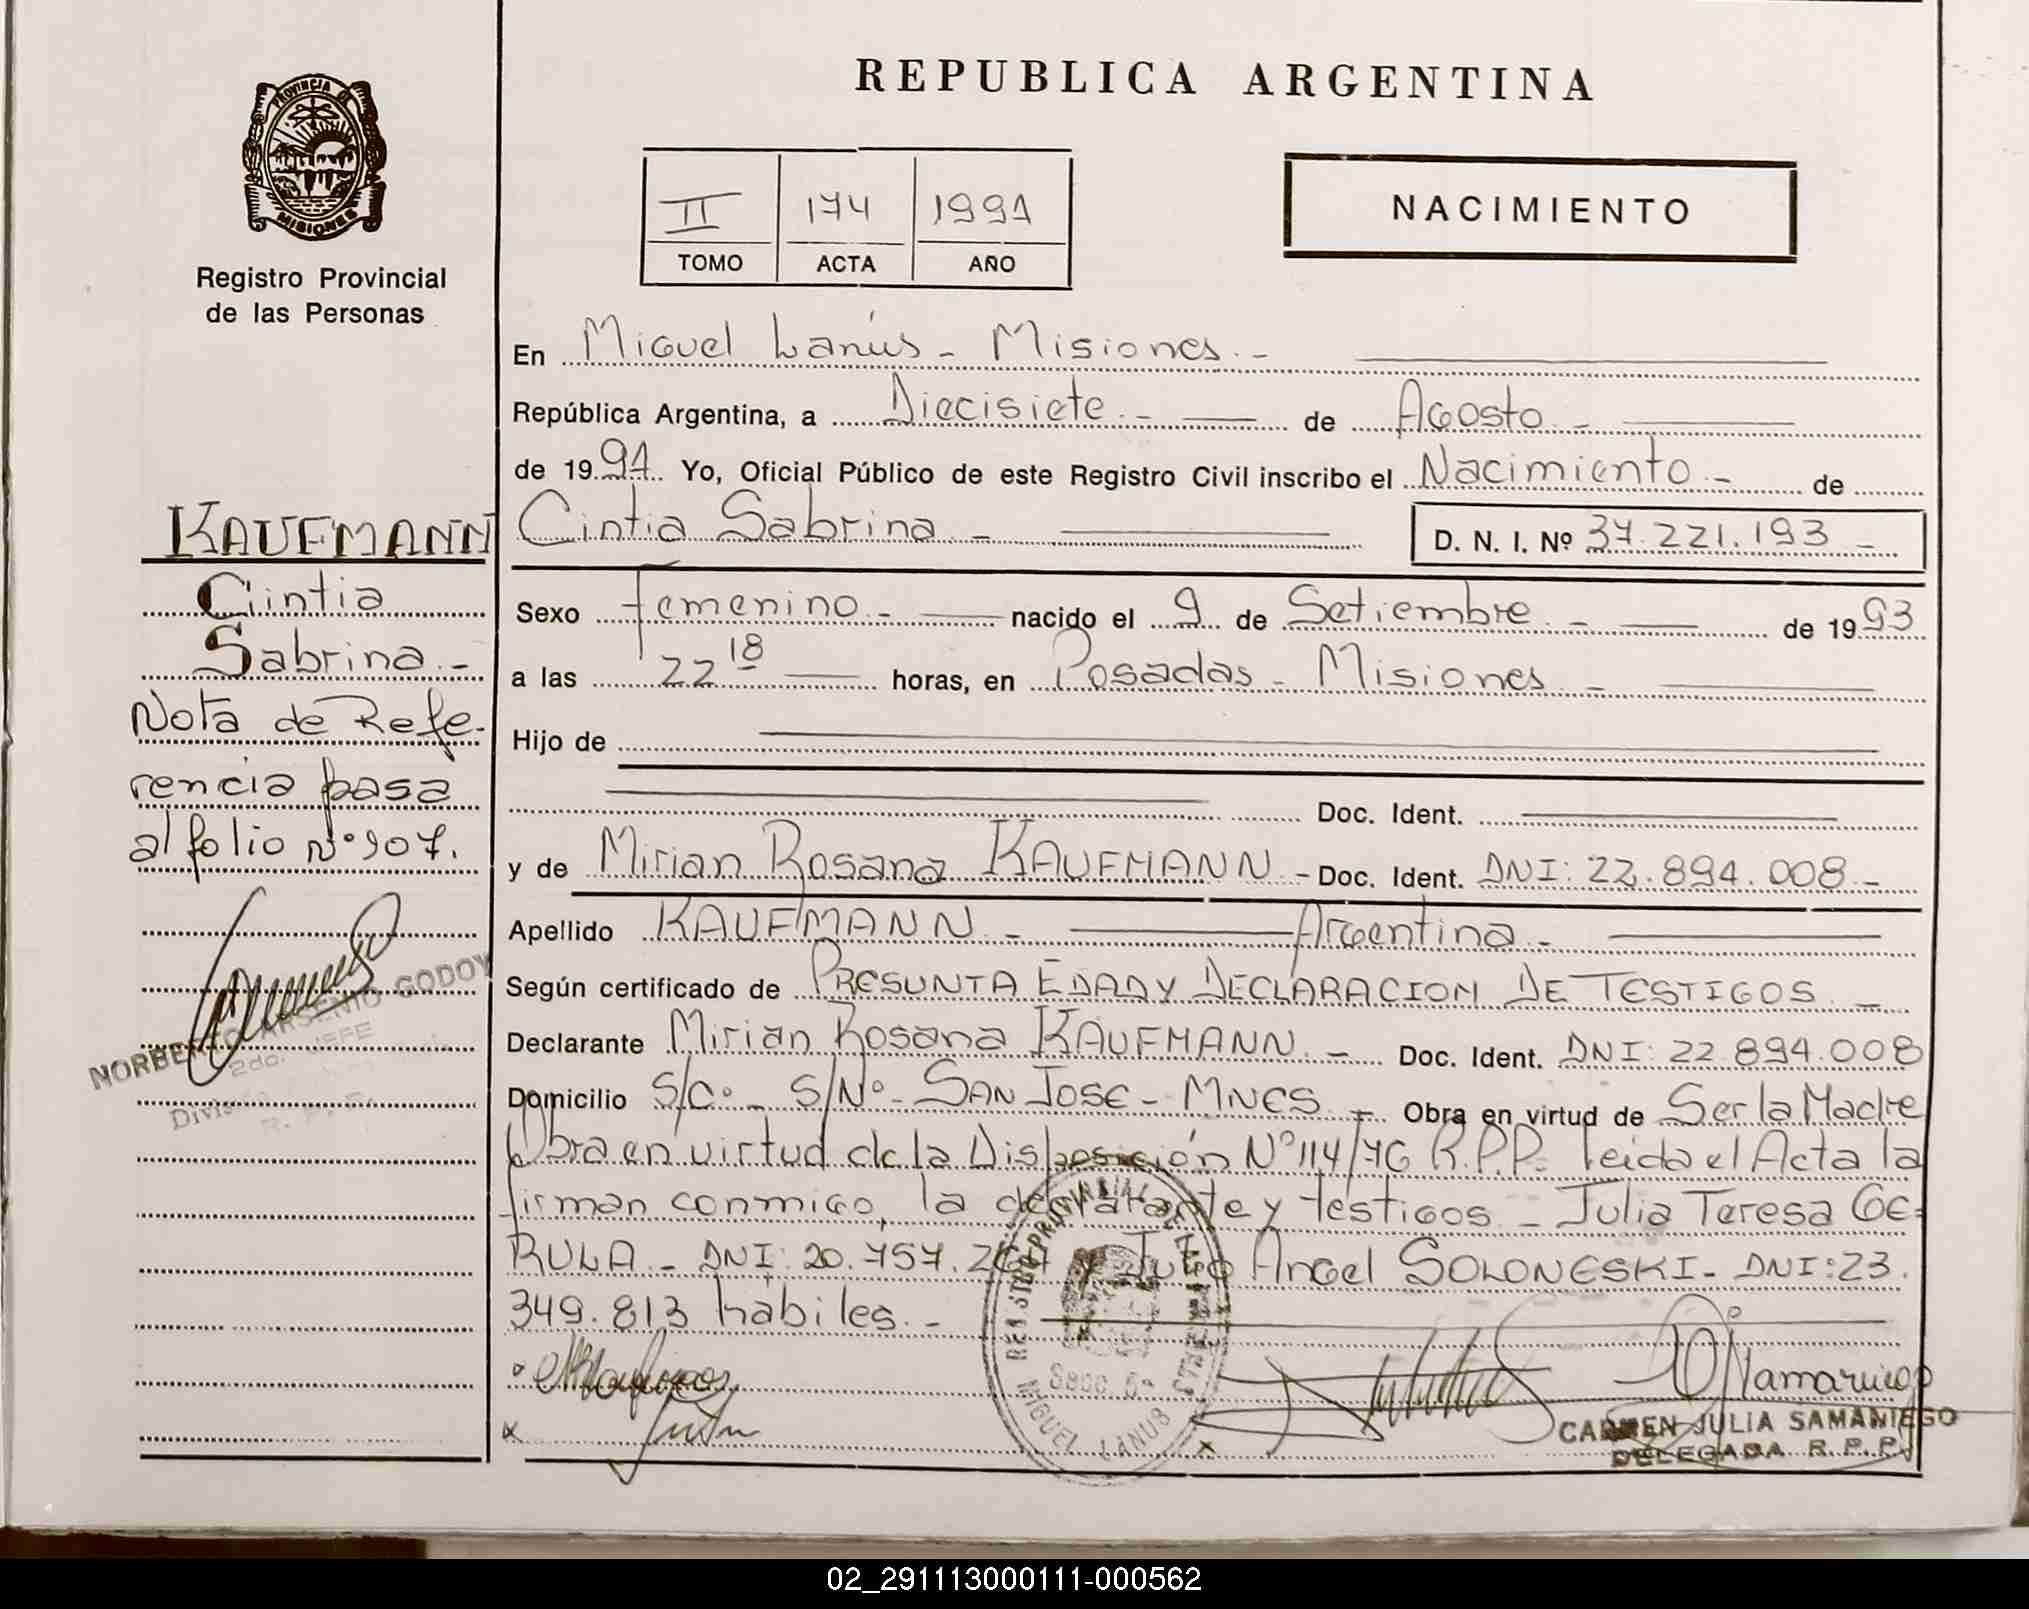 REPUBLICA ARGENTINA
PROVINCIA DE
MISIONES
Registro Provincial
de las Personas
II 174 1994
TOMO ACTA AÑO
NACIMIENTO
En Miguel Lanús - Misiones. -
República Argentina, a Diecisiete. - de Agosto. -
de 1994. Yo, Oficial Público de este Registro Civil inscribo el Nacimiento. - de
Cintia Sabrina - D. N. I. Nº 37.221.193 -
Sexo femenino. - nacido el 9 de Setiembre. - de 1993
a las 22 18 horas, en Posadas - Misiones -
Hijo de
Doc. Ident.
y de Mirian Rosana KAUFMANN. - Doc. Ident. DNI: 22.894.008 -
Apellido KAUFMANN. - Argentina. -
Según certificado de PRESUNTA EDAD Y DECLARACION DE TESTIGOS. -
Declarante Mirian Rosana KAUFMANN. - Doc. Ident. DNI: 22.894.008
Domicilio S/Cº - S/Nº - SAN JOSE - MNES. - Obra en virtud de Ser la Madre
Obra en virtud de la Disposición Nº 114/76 R.P.P. leida el Acta la
firman conmigo, la declarante y testigos - Julia Teresa GE-
RULA - DNI: 20.757. y Julio Angel SOLONESKI - DNI: 23.
349.813 habiles. -
KAUFMANN
Cintia
Sabrina. -
Nota de Refe-
rencia pasa
al folio Nº 907.
NORBERTO ARSENIO GODOY
2do. JEFE
REGISTRO PROVINCIAL DE LAS PERSONAS
MIGUEL LANUS
x x
CARMEN JULIA SAMANIEGO
DELEGADA R. P. P.
02_291113000111-000562